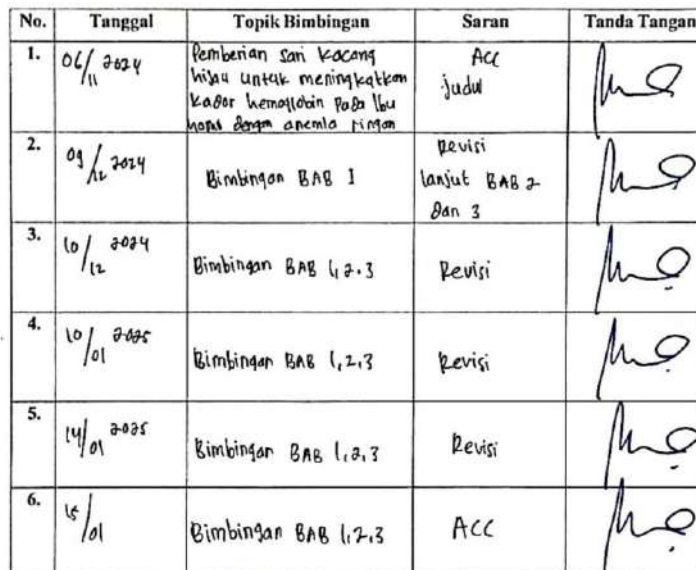 No. Tanggal Topik Bimbingan Saran Tanda Tangan
1. 06/11 2024 Pemberian Sari Kacang Acc
hijau untuk meningkatkan judul
Kadar hemoglobin Pada Ibu
hamil dengan anemia ringan
2. 09/12 2024 Bimbingan BAB I Revisi
lanjut BAB 2
dan 3
3. 10/12 2024 Bimbingan BAB 1,2.3 Revisi
4. 10/01 2025 Bimbingan BAB 1,2,3 Revisi
5. 14/01 2025 Bimbingan BAB 1,2,3 Revisi
6. 15/01 Bimbingan BAB 1,2.3 ACC